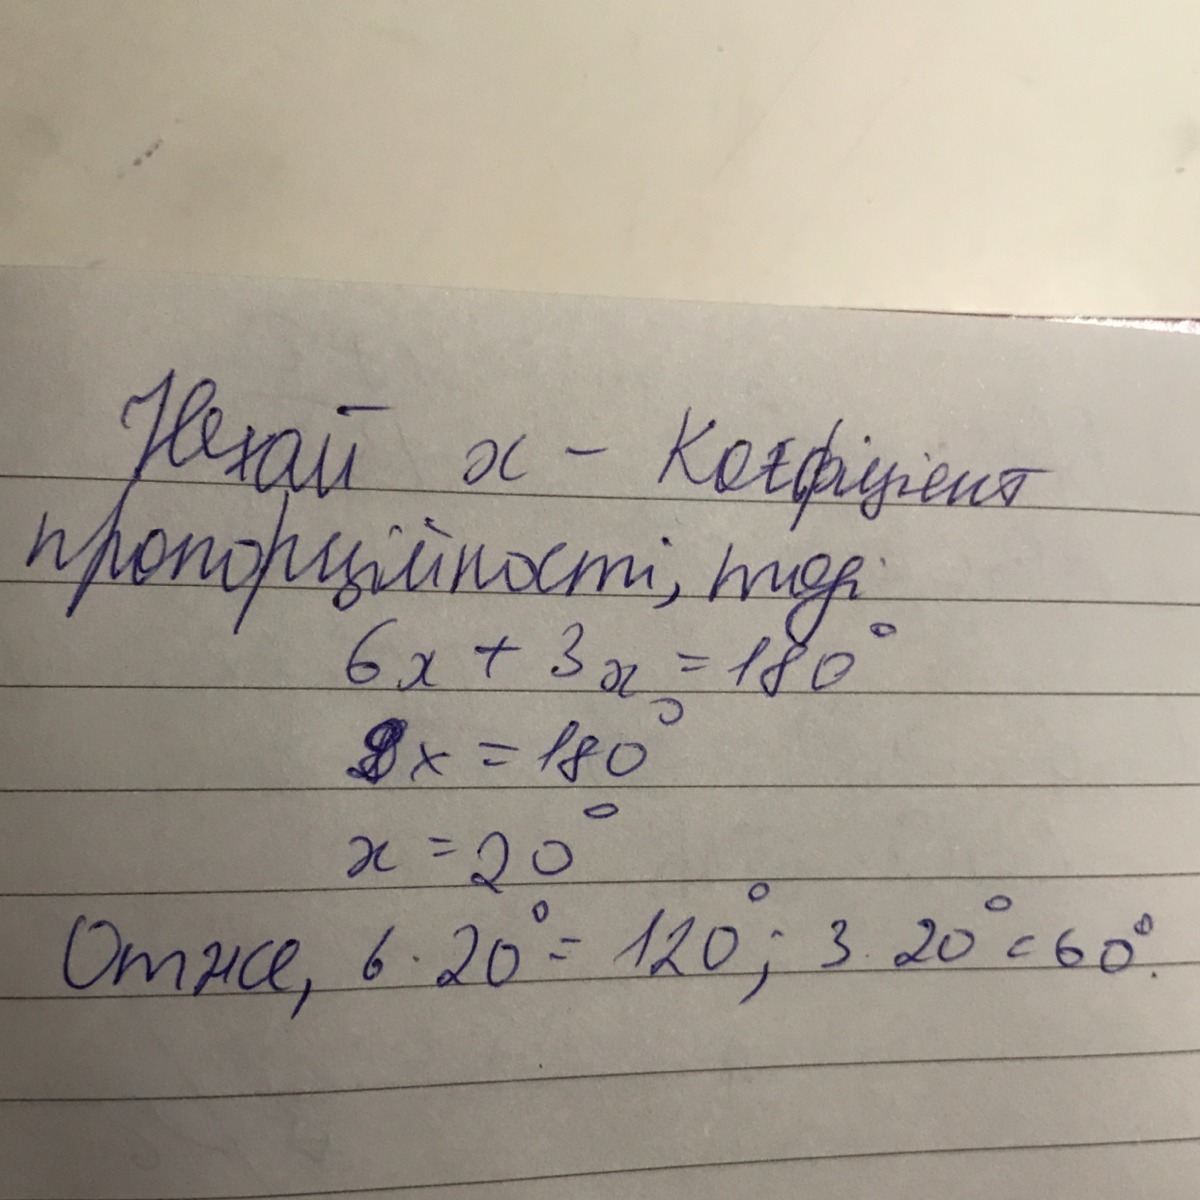 Нехай x - Коефіцієнт
пропорційності, тоді
6x + 3x = 180°
9x = 180°
x = 20°
Отже, 6 · 20° = 120°; 3 · 20° = 60°.